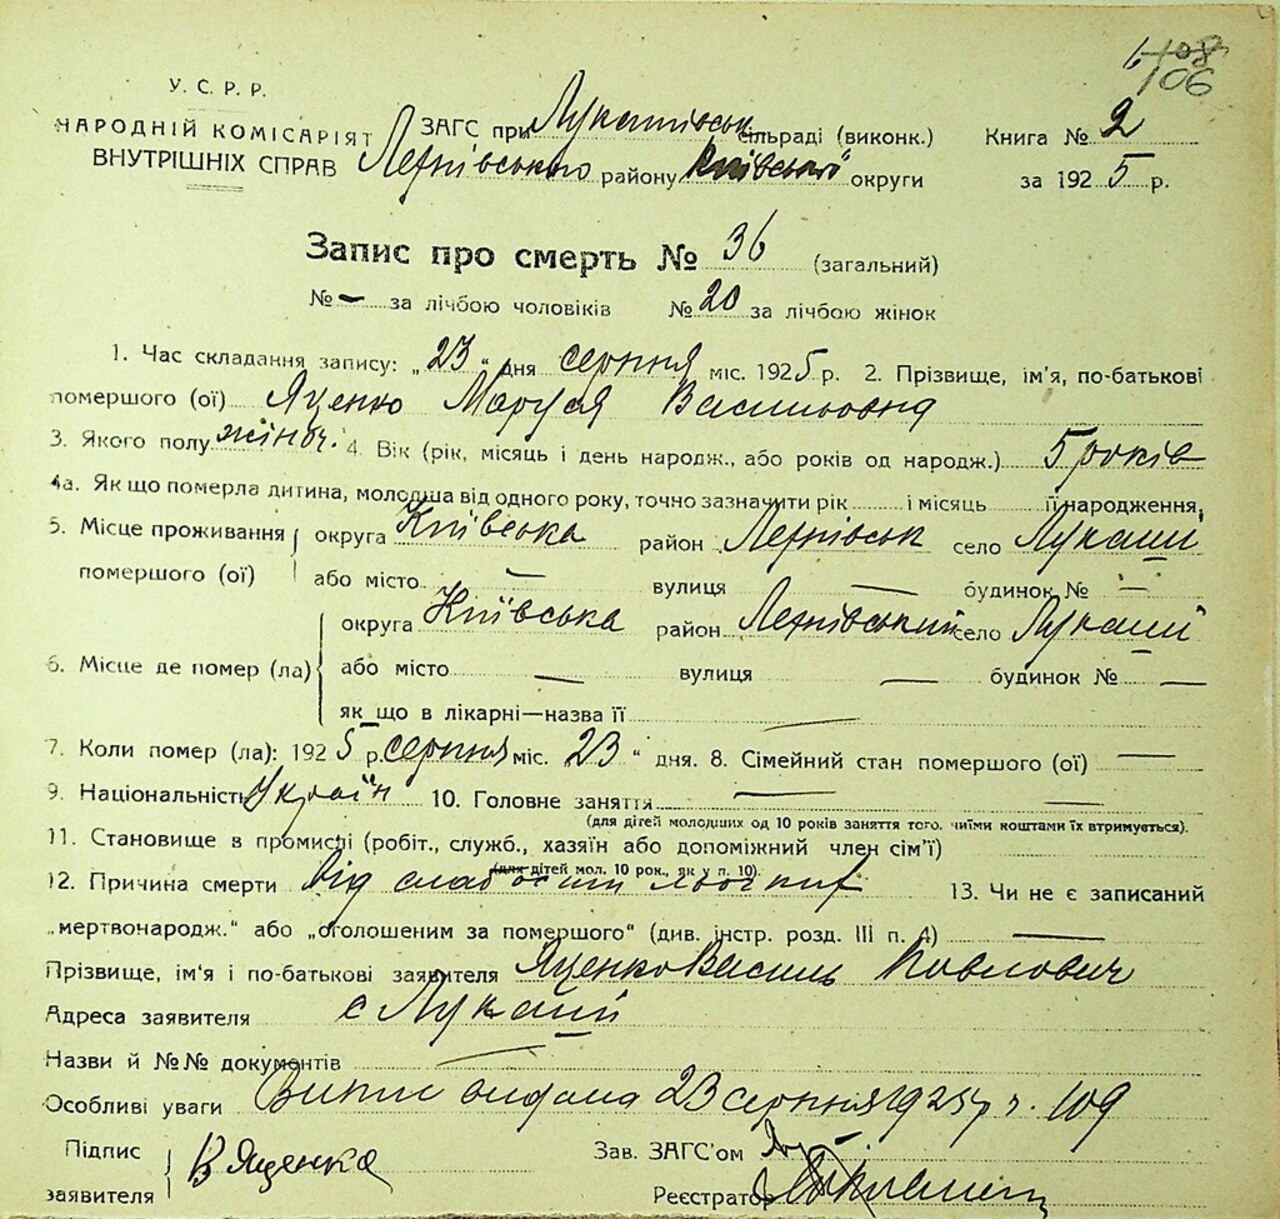 108
106
У. С. Р. Р.
НАРОДНІЙ КОМІСАРІЯТ
ВНУТРІШНІХ СПРАВ
ЗАГС при Лукашівськ сільраді (виконк.) Книга № 2
району Київської округи за 1925 р.
Запис про смерть № 36 (загальний)
№ — за лічбою чоловіків № 20 за лічбою жінок
1. Час складання запису: „23“ дня серпня міс. 1925 р. 2. Прізвище, ім'я, по-батькові
помершого (ої) Яценко Маруся Васильовна
3. Якого полу жіноч. 4. Вік (рік, місяць і день народж., або років од народж.) 5 років
4а. Як що померла дитина, молодша від одного року, точно зазначити рік і місяць її народження,
5. Місце проживання округа Київська район село Лукаші
помершого (ої) або місто — вулиця — будинок № —
округа Київська район село Лукаші
6. Місце де помер (ла) або місто — вулиця — будинок № —
як що в лікарні—назва її —
7. Коли помер (ла): 1925 р. серпня міс. 23 “ дня. 8. Сімейний стан помершого (ої) —
9. Національність Україн 10. Головне заняття — —
(для дітей молодших од 10 років заняття того, чиїми коштами їх втримується).
11. Становище в промислі (робіт., служб., хазяїн або допоміжний член сім'ї)
(для дітей мол. 10 рок., як у п. 10).
12. Причина смерти Від слабости 13. Чи не є записаний
„мертвонародж.“ або „оголошеним за помершого“ (див. інстр. розд. III п. 4) —
Прізвище, ім'я і по-батькові заявителя Яценко Василь Павлович
Адреса заявителя с Лукаші
Назви й №№ документів —
Особливі уваги видана 23 серпня 1925 р. 109
Підпис В Яценка Зав. ЗАГС'ом
заявителя Реєстратор